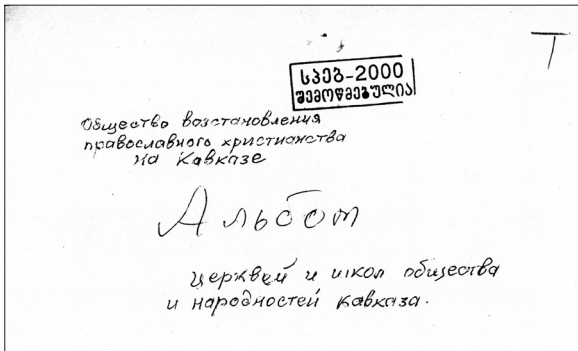 Т
სპეგ-2000
შემოწმებულია
Общество возстановления
православного христианства
на Кавказе
Альбом
церквей и школ общества
и народностей Кавказа.